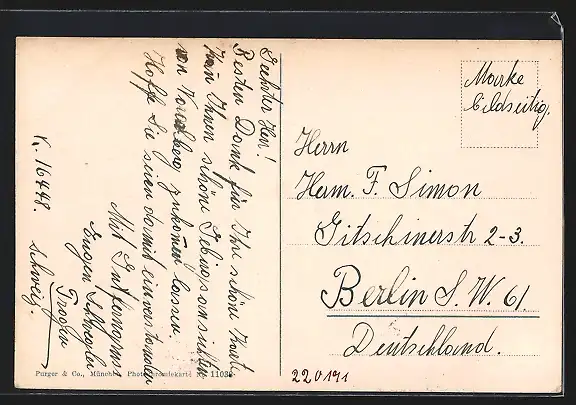 Geehrter Herr!
Besten Dank für Ihre schöne Karte
Kann Ihnen schöne Gebirgsansichten
von Vorarlberg zukommen lassen.
Hoffe Sie seien damit einverstanden
Mit Sutfamgruss
Eugen
Trogen
Schweiz.
K. 16448.
Marke
bildseitig.
Herrn
Herm. F. Simon
Gitschinerstr 2-3.
Berlin S. W. 61.
Deutschland.
Purger & Co., München Photochromiekarte 11032
220191